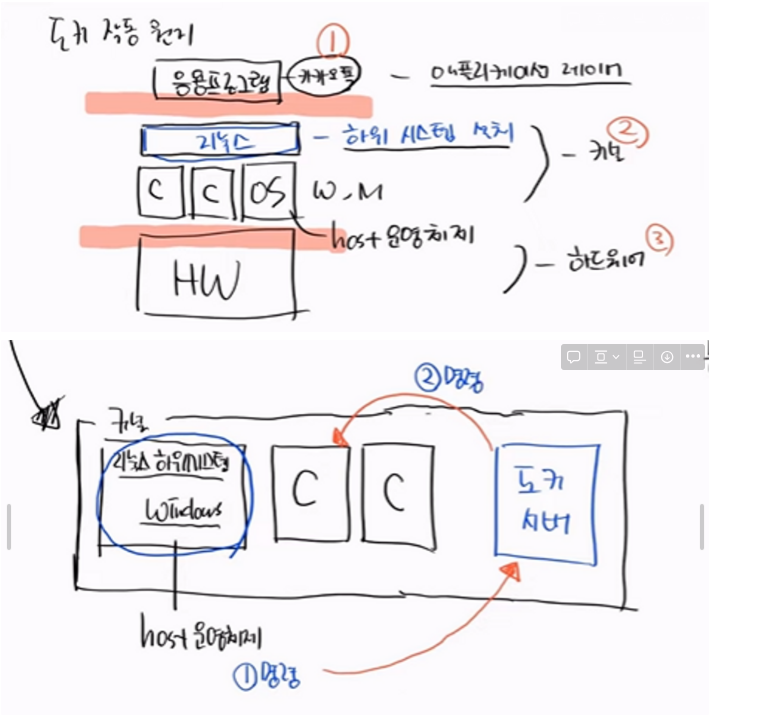 도커 작동 원리
①
응용프로그램 카카오톡 - 애플리케이션 레이어
리눅스 - 하위 시스템 설치
②
C C OS W, M - 커널
host 운영체제
③
HW - 하드웨어
② 명령
커널
리눅스 하위시스템
Windows
C C
도커
서버
host 운영체제
① 명령